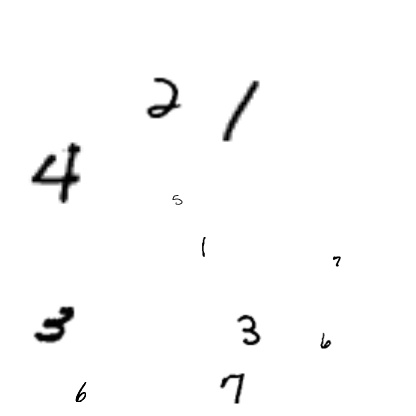 2 1
4
5
1
7
3 3 6
6 7